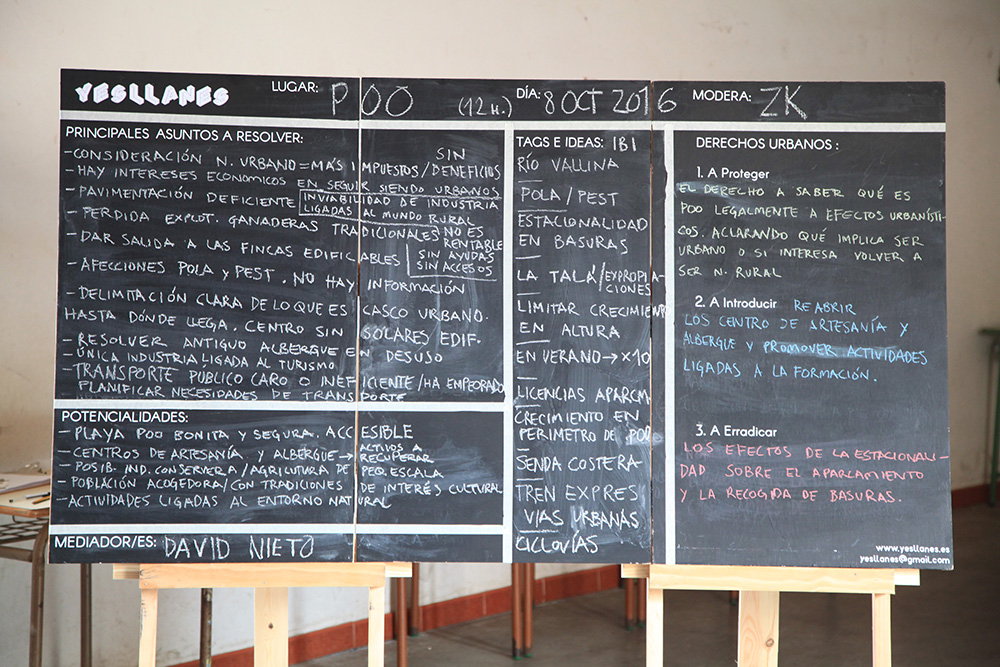 YESLLANES LUGAR: POO (12 H.) DÍA: 8 OCT 2016 MODERA: ZK
PRINCIPALES ASUNTOS A RESOLVER:
- CONSIDERACIÓN N. URBANO = MÁS IMPUESTOS / SIN BENEFICIOS
- HAY INTERESES ECONOMICOS EN SEGUIR SIENDO URBANOS
- PAVIMENTACIÓN DEFICIENTE INVIABILIDAD DE INDUSTRIA
LIGADAS AL MUNDO RURAL
- PERDIDA EXPLOT. GANADERAS TRADICIONALES NO ES
RENTABLE
- DAR SALIDA A LAS FINCAS EDIFICABLES SIN AYUDAS
SIN ACCESOS
- AFECCIONES POLA Y PEST. NO HAY INFORMACIÓN
- DELIMITACIÓN CLARA DE LO QUE ES CASCO URBANO.
HASTA DÓNDE LLEGA. CENTRO SIN SOLARES EDIF.
- RESOLVER ANTIGUO ALBERGUE EN DESUSO
- ÚNICA INDUSTRIA LIGADA AL TURISMO
- TRANSPORTE PÚBLICO CARO O INEFICIENTE / HA EMPEORADO
PLANIFICAR NECESIDADES DE TRANSPORTE
POTENCIALIDADES:
- PLAYA POO BONITA Y SEGURA. ACCESIBLE
- CENTROS DE ARTESANÍA Y ALBERGUE → ACTIVOS A
RECUPERAR
- POSIB. IND. CONSERVERA / AGRICULTURA DE PEQ. ESCALA
- POBLACIÓN ACOGEDORA / CON TRADICIONES DE INTERÉS CULTURAL
- ACTIVIDADES LIGADAS AL ENTORNO NATURAL
MEDIADOR/ES: DAVID NIETO
TAGS E IDEAS: IBI
RÍO VALLINA
POLA / PEST
ESTACIONALIDAD
EN BASURAS
LA TALÁ / EXPROPIA-
CIONES
LIMITAR CRECIMIENTO
EN ALTURA
EN VERANO → x10
LICENCIAS APARCM
CRECIMIENTO EN
PERIMETRO DE POO
SENDA COSTERA
TREN EXPRES
VIAS URBANAS
CICLOVÍAS
DERECHOS URBANOS :
1. A Proteger
EL DERECHO A SABER QUÉ ES
POO LEGALMENTE A EFECTOS URBANÍSTI-
COS. ACLARANDO QUÉ IMPLICA SER
URBANO O SI INTERESA VOLVER A
SER N. RURAL
2. A Introducir REABRIR
LOS CENTRO DE ARTESANÍA Y
ALBERGUE Y PROMOVER ACTIVIDADES
LIGADAS A LA FORMACIÓN.
3. A Erradicar
LOS EFECTOS DE LA ESTACIONALI-
DAD SOBRE EL APARCAMIENTO
Y LA RECOGIDA DE BASURAS.
www.yesllanes.es
yesllanes@gmail.com